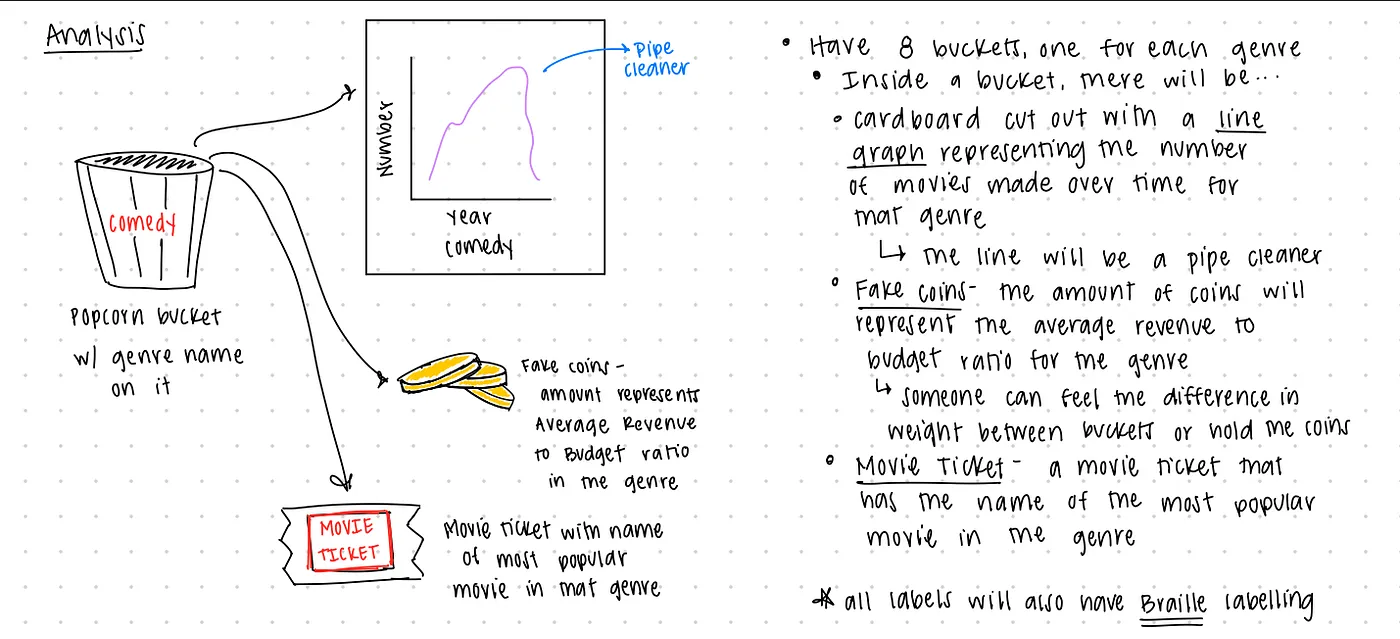 Analysis
Pipe
cleaner
Number
year
comedy
comedy
Popcorn bucket
w/ genre name
on it
Fake coins -
amount represents
Average Revenue
to Budget ratio
in the genre
MOVIE
TICKET
Movie ticket with name
of most popular
movie in that genre
• Have 8 buckets, one for each genre
• Inside a bucket, there will be...
• cardboard cut out with a line
graph representing the number
of movies made over time for
that genre
↳ the line will be a pipe cleaner
• Fake coins - the amount of coins will
represent the average revenue to
budget ratio for the genre
↳ someone can feel the difference in
weight between buckets or hold the coins
• Movie Ticket - a movie ticket that
has the name of the most popular
movie in the genre
* all labels will also have Braille labelling